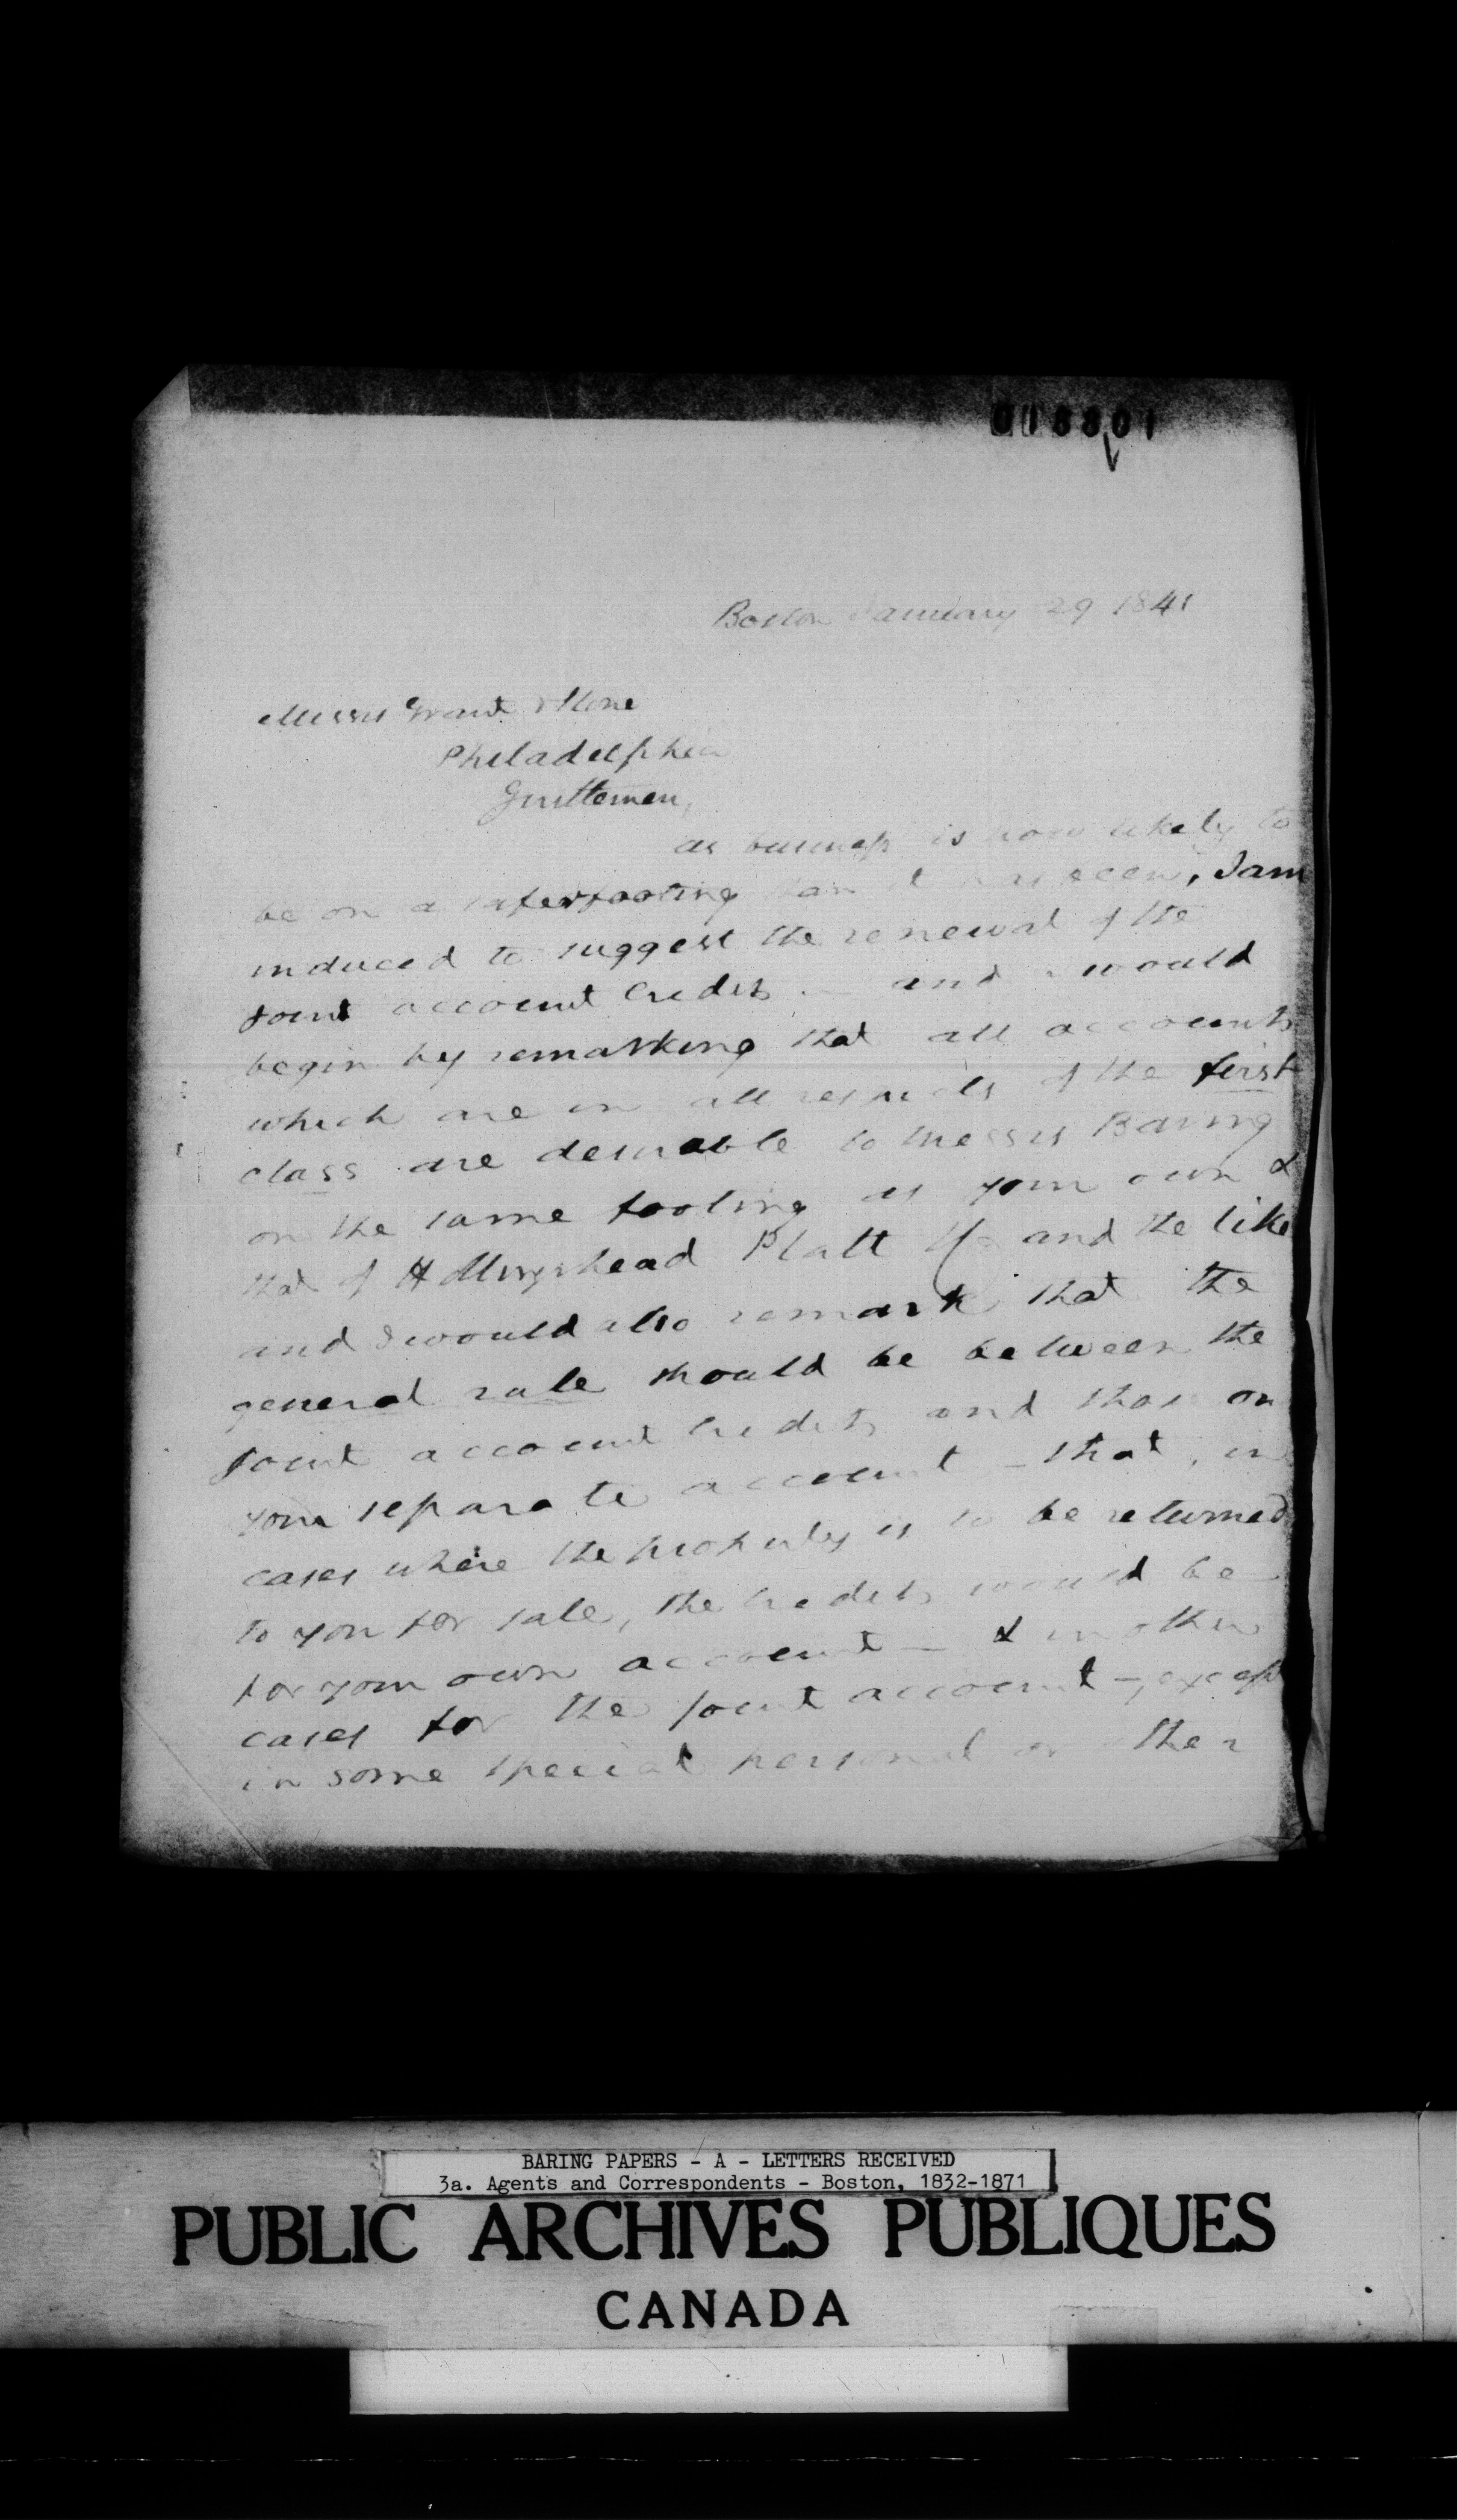 018801
Boston January 29 1841
Messrs Grant & Stone
Philadelphia
Gentlemen,
as business is now likely to
be on a safer footing than it has been, I am
induced to suggest the renewal of the
joint account Credits — and I would
begin by remarking that all accounts
which are in all respects of the first
class are desirable to Messrs Baring
on the same footing as your own &
that of Hollingshead Platt & Co and the like
and I would also remark that the
general rule should be between the
joint account Credits and those on
your separate account — that, in
cases where the property is to be returned
to you for sale, the Credits would be
for your own account — & in other
cases for the joint account —, except
in some special personal or other
BARING PAPERS - A - LETTERS RECEIVED
3a. Agents and Correspondents - Boston, 1832-1871
PUBLIC ARCHIVES PUBLIQUES
CANADA